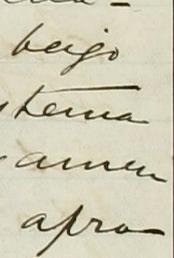 beijo
stema
amen
apro-